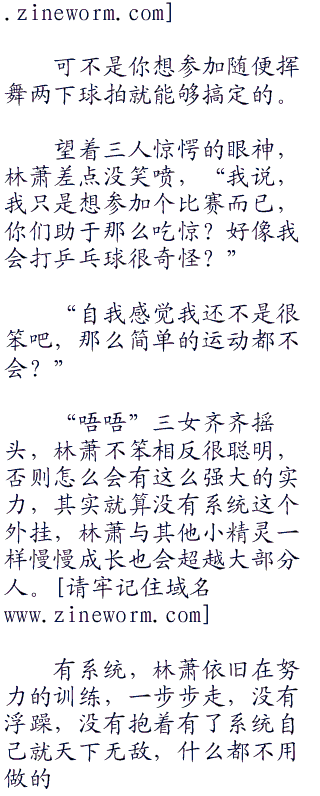 .zineworm.com]
可不是你想参加随便挥
舞两下球拍就能够搞定的。
望着三人惊愕的眼神，
林萧差点没笑喷，“我说，
我只是想参加个比赛而已，
你们助于那么吃惊？好像我
会打乒乓球很奇怪？”
“自我感觉我还不是很
笨吧，那么简单的运动都不
会？”
“唔唔”三女齐齐摇
头，林萧不笨相反很聪明，
否则怎么会有这么强大的实
力，其实就算没有系统这个
外挂，林萧与其他小精灵一
样慢慢成长也会超越大部分
人。[请牢记住域名
www.zineworm.com]
有系统，林萧依旧在努
力的训练，一步步走，没有
浮躁，没有抱着有了系统自
己就天下无敌，什么都不用
做的